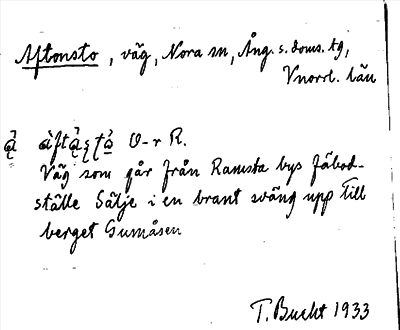 Aftonsto, väg, Nora sn, Ång. s. doms. tg,
Vnorrl. län
O-r R.
Väg som går från Ramsta bys fäbod-
ställe Sälje i en brant sväng upp till
berget Gumåsen
T. Bucht 1933